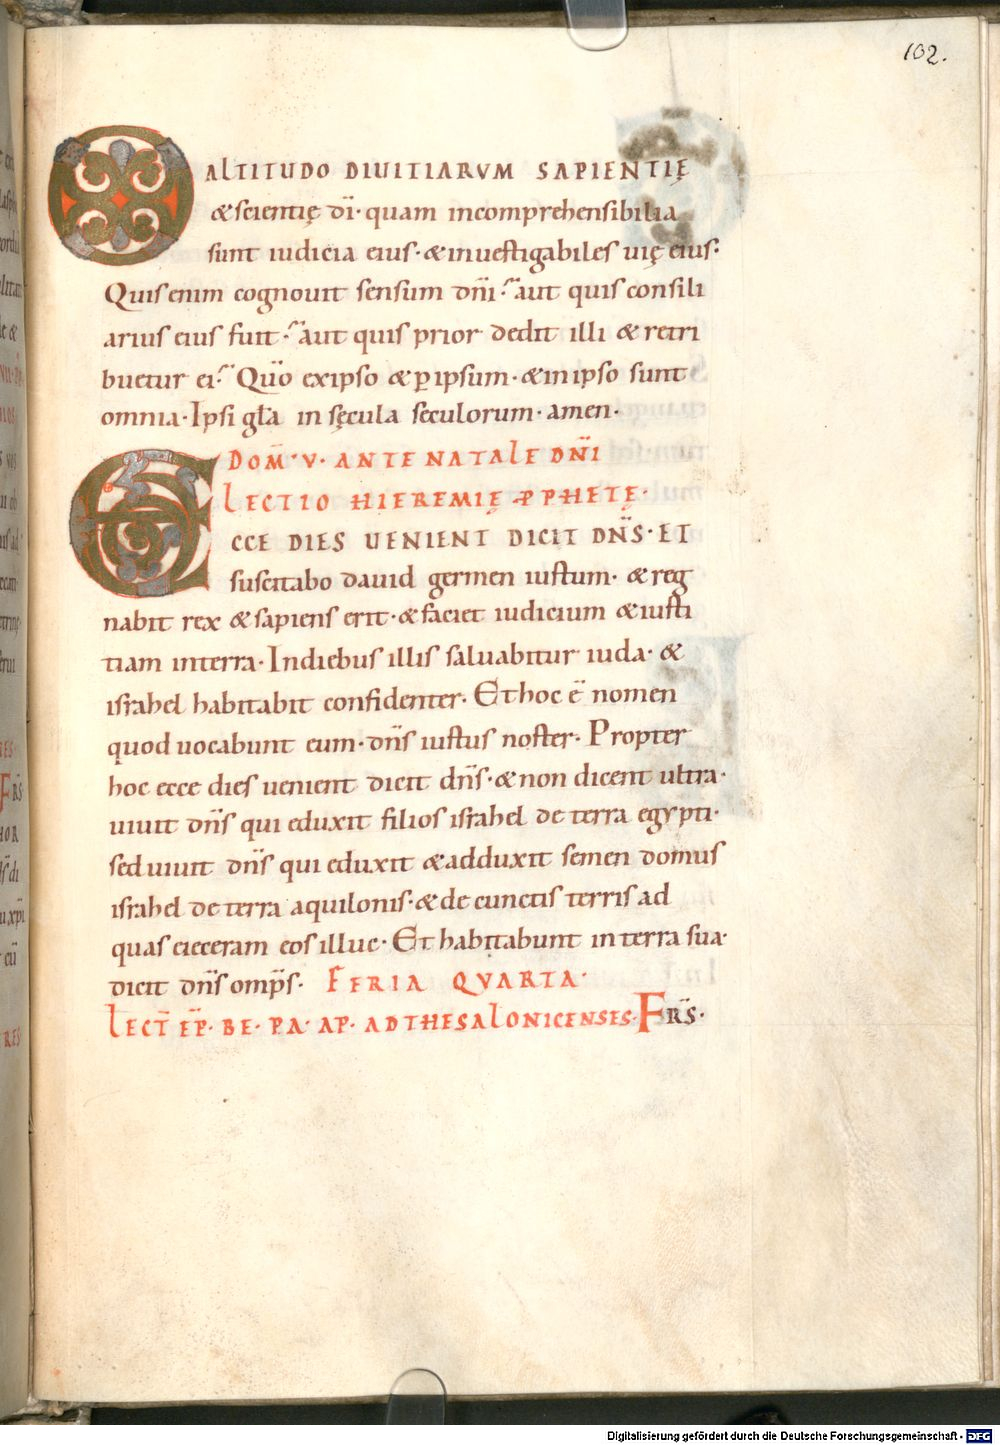 102.
O ALTITUDO DIUITIARVM SAPIENTIĘ
& scientię dī· quam incomprehensibilia
sunt iudicia eius· & inuestigabiles uię eius·
Quis enim cognouit sensum dn̄i? aut quis consili
arius eius fuit? aut quis prior dedit illi & retri
buetur ei? Qūo ex ipso & p̱ ipsum· & in ipso sunt
omnia· Ipsi gła in sęcula seculorum· amen·
DOM̄· V· ANTE NATALE DN̄I
LECTIO HIEREMIĘ PPHETĘ·
ECCE DIES UENIENT DICIT DN̄S· ET
suscitabo dauid germen iustum· & reg
nabit rex & sapiens erit· & faciet iudicium & iusti
tiam in terra· In diebus illis saluabitur iuda· &
israhel habitabit confidenter· Et hoc ē nomen
quod uocabunt eum· dn̄s iustus noster· Propter
hoc ecce dies uenient dicit dn̄s· & non dicent ultra·
uiuit dn̄s qui eduxit filios israhel de terra egypti·
sed uiuit dn̄s qui eduxit & adduxit semen domus
israhel de terra aquilonis· & de cunctis terris ad
quas eieceram eos illuc· Et habitabunt in terra sua·
dicit dn̄s omp̄s· FERIA QVARTA·
LECT̄ EP̄· BE· PA· AP· AD THESALONICENSES· FR̄S·
Digitalisierung gefördert durch die Deutsche Forschungsgemeinschaft - DFG